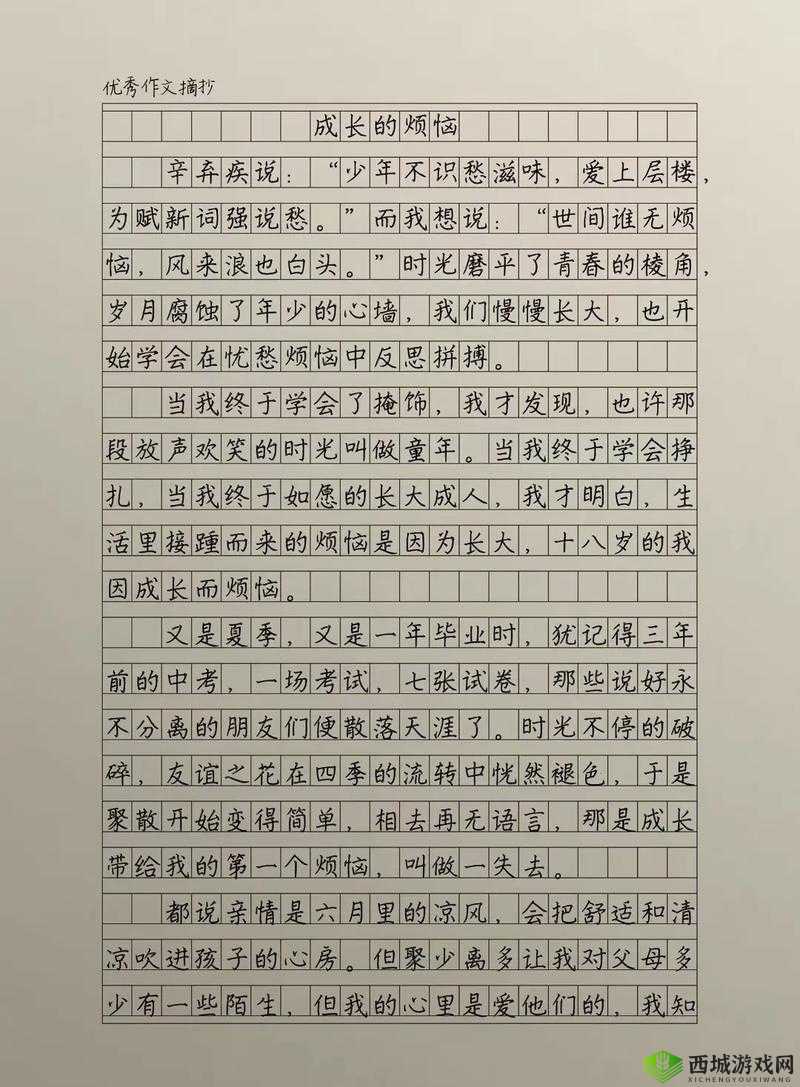 优秀作文摘抄
成长的烦恼
辛弃疾说：“少年不识愁滋味，爱上层楼，
为赋新词强说愁。”而我想说：“世间谁无烦
恼，风来浪也白头。”时光磨平了青春的棱角，
岁月腐蚀了年少的心墙，我们慢慢长大，也开
始学会在忧愁烦恼中反思拼搏。
当我终于学会了掩饰，我才发现，也许那
段放声欢笑的时光叫做童年。当我终于学会挣
扎，当我终于如愿的长大成人，我才明白，生
活里接踵而来的烦恼是因为长大，十八岁的我
因成长而烦恼。
又是夏季，又是一年毕业时，犹记得三年
前的中考，一场考试，七张试卷，那些说好永
不分离的朋友们便散落天涯了。时光不停的破
碎，友谊之花在四季的流转中恍然褪色，于是
聚散开始变得简单，相去再无语言，那是成长
带给我的第一个烦恼，叫做一失去。
都说亲情是六月里的凉风，会把舒适和清
凉吹进孩子的心房。但聚少离多让我对父母多
少有一些陌生，但我的心里是爱他们的，我知
西城游戏网
XICHENGYOUXIWANG